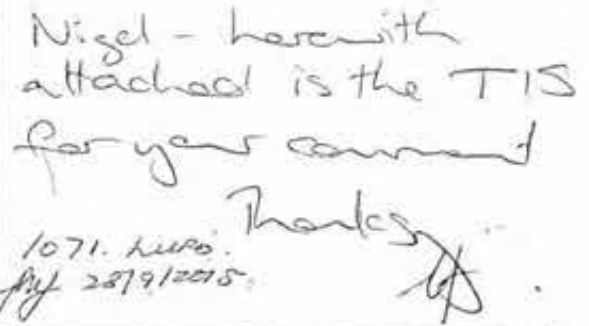 Nigel - herewith
attached is the TIS
for your comment
Thanks,
1071.
28/9/2015.